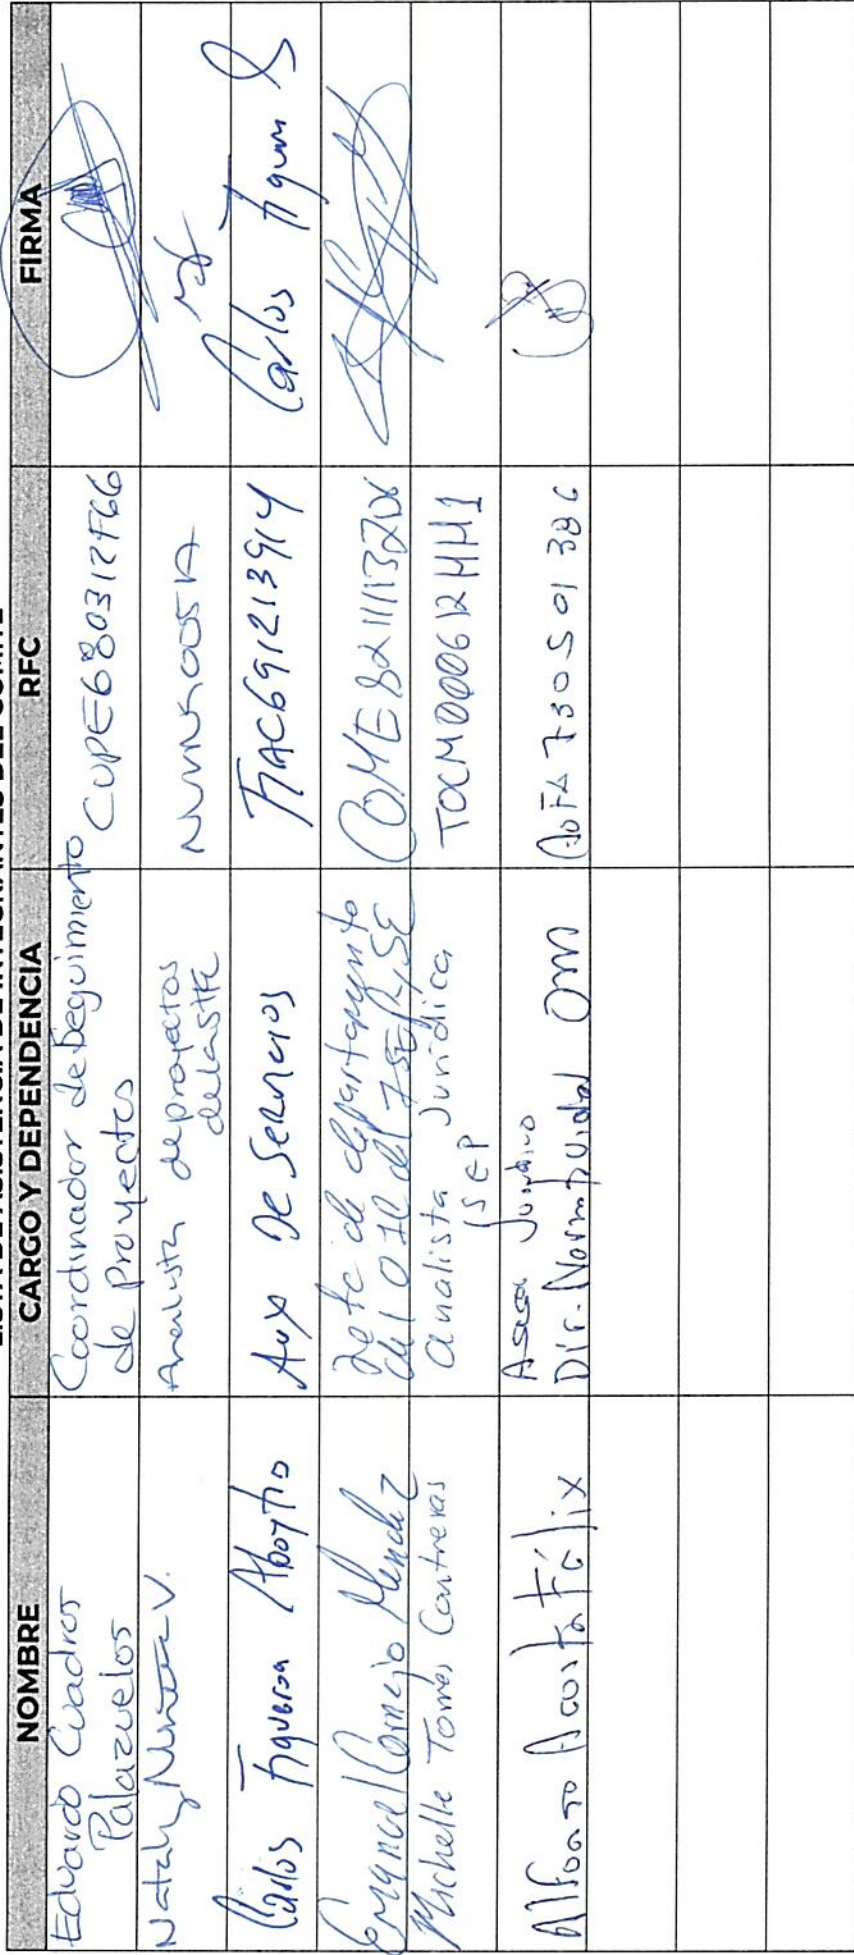 LISTA DE ASISTENCIA DE INTEGRANTES DEL COMITÉ
NOMBRE CARGO Y DEPENDENCIA RFC FIRMA
Eduardo Cuadros Palazuelos
Coordinador de Seguimiento
de Proyectos
CUPE680312F66
Nataly V.
Analista de proyectos
de la
Carlos Figueroa Aboytio
Aux De Servicios
FIAC691213914
Carlos Figueroa
Emanuel Cornejo Mendez
Jefe de departamento
COME821111
Michelle Torres Contreras
Analista Jurídica
ISEP
TOCM000612HH1
Alfonso Acosta Félix
Asesor Jurídico
Dir. Normatividad OM
AOFA730501386